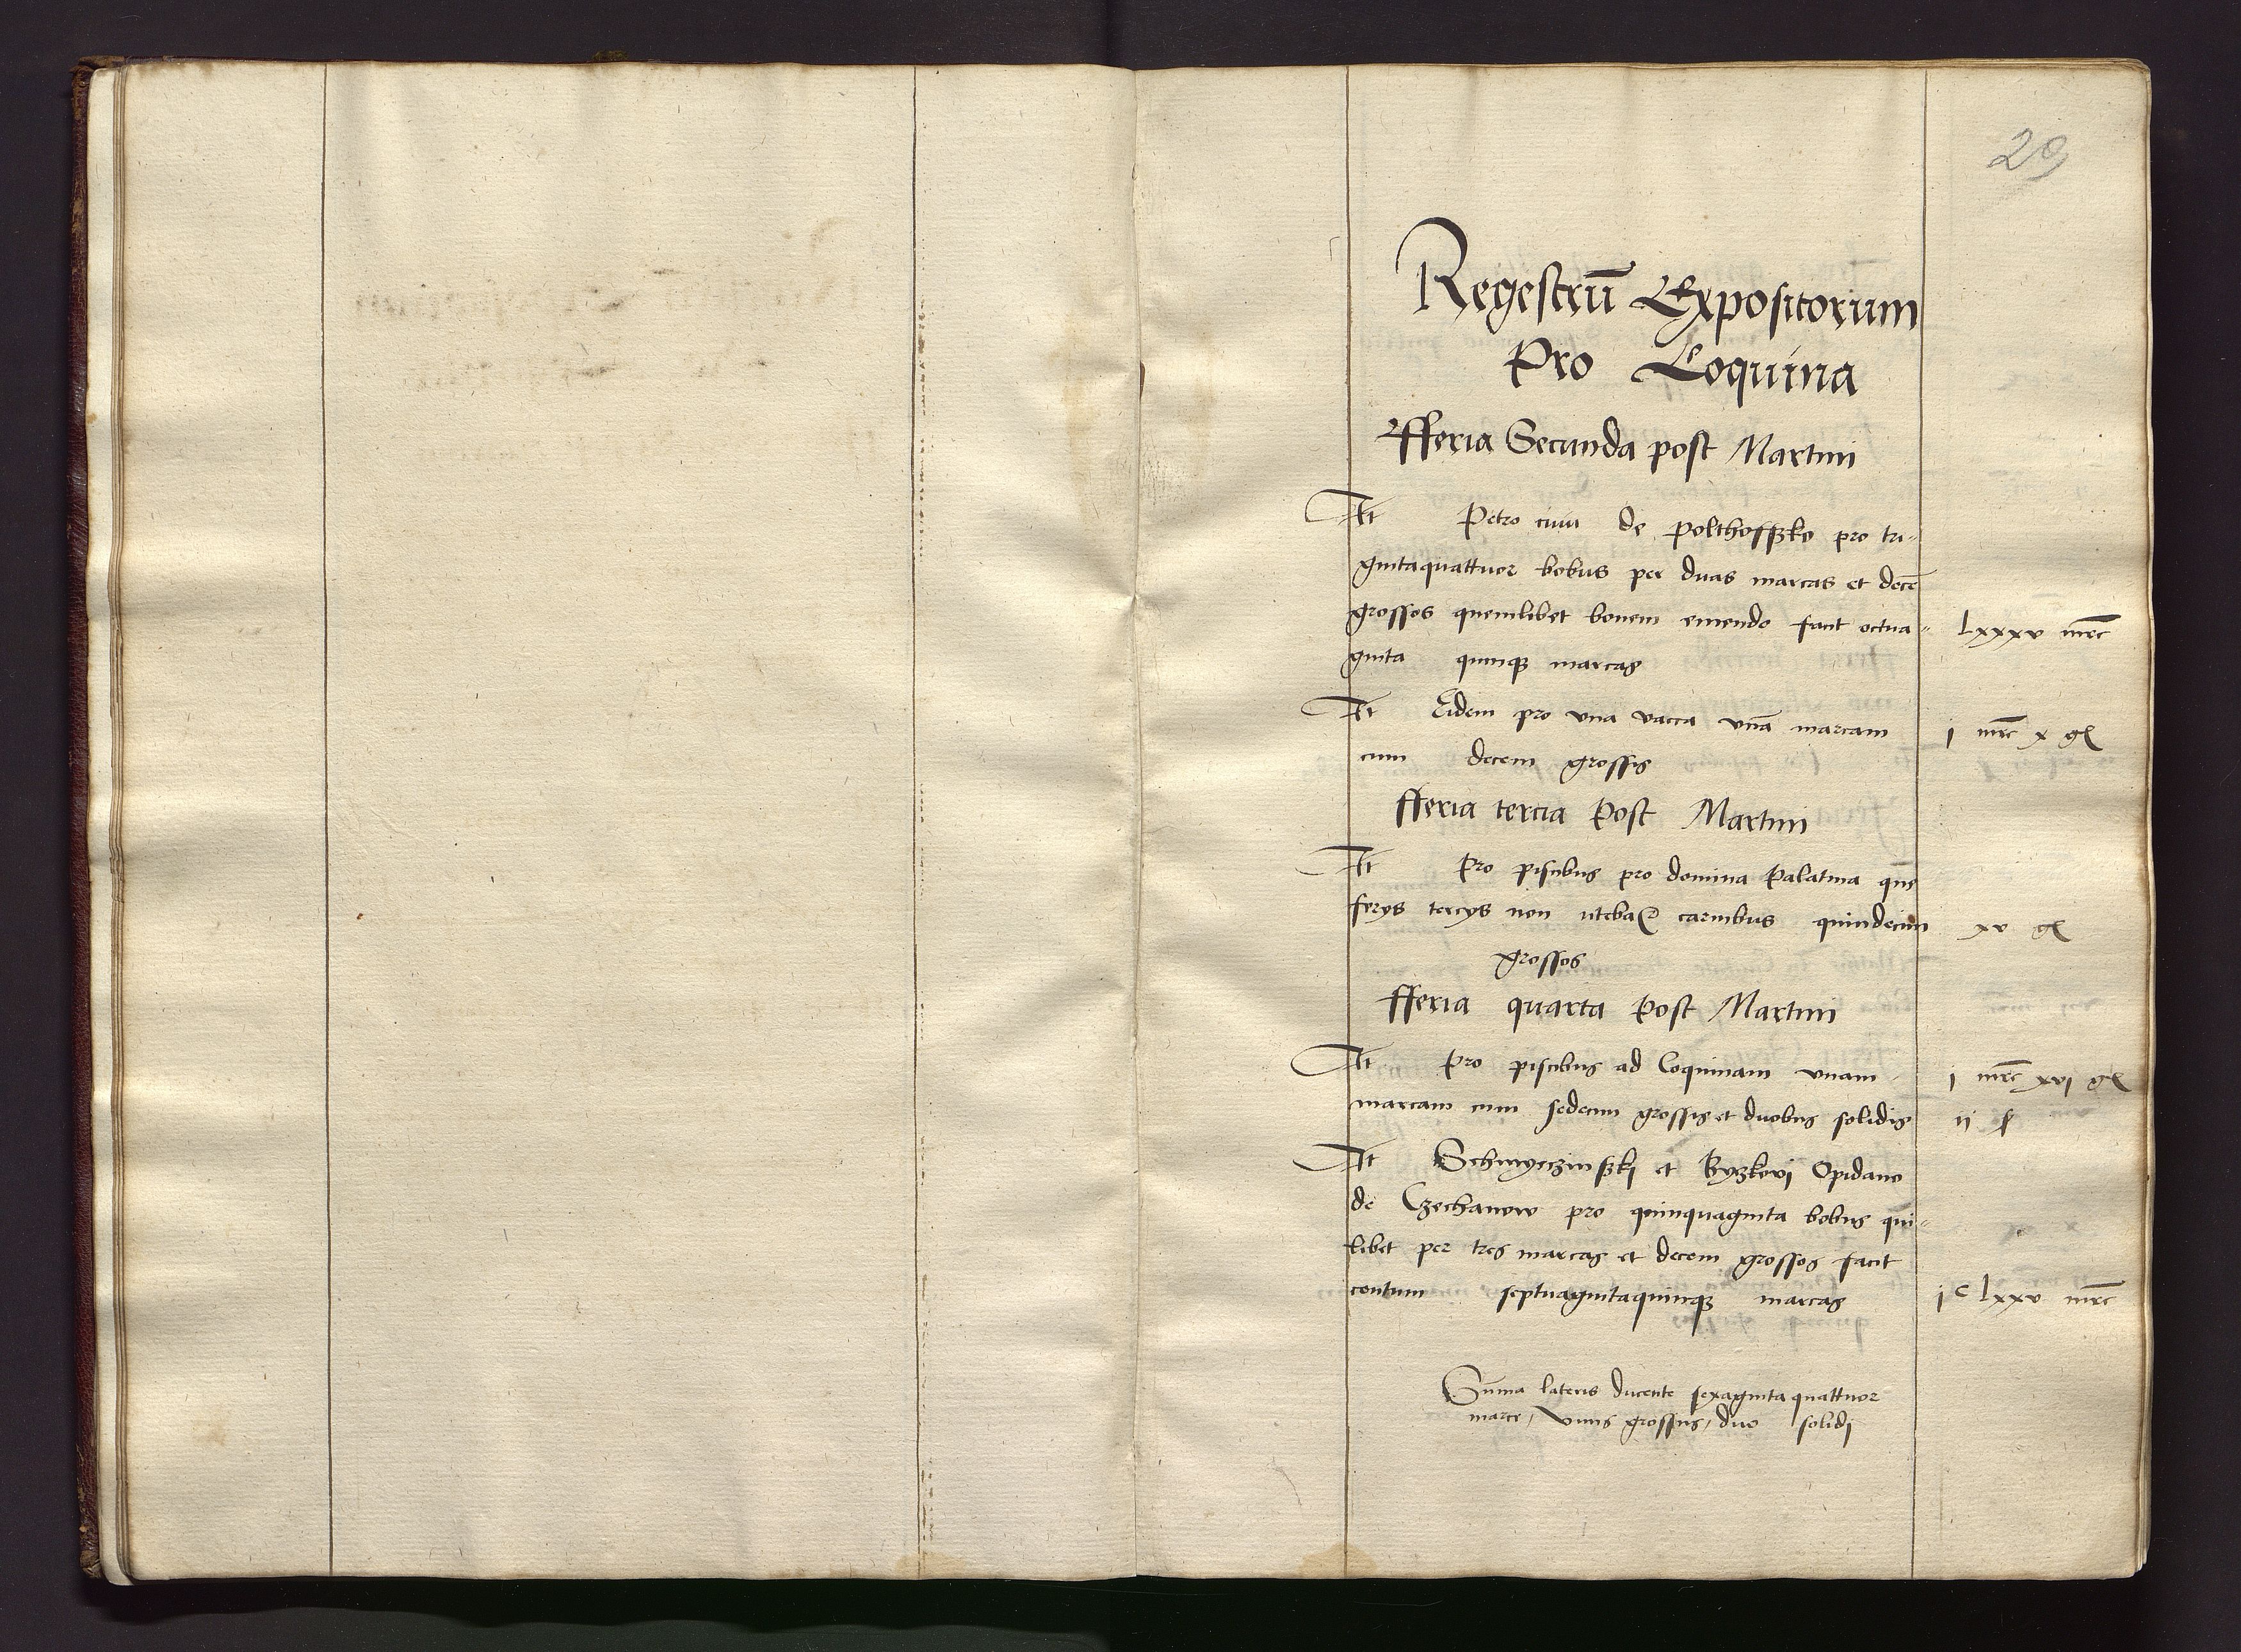 29
Regestrū Expositorum
Pro Coquina
Fferia Secunda post Martini
It Petro ciui de Polthofszko pro tri-
gintaquattuor bobus per duas marcas et decē
grossos quemlibet bouem emendo facit octua-
ginta quinqȝ marcas
Lxxxv mrc
It Eidem pro vna vacca vnā marcam
cum decem grossis
j mrc x gͬ
fferia tercia Post Martini
It Pro piscibus pro domina Palatina que
ferijs tercijs non vtebat carnibus quindecim
grossos
xv gͬ
fferia quarta Post Martini
It Pro piscibus ad Coquinam vnam
marcam cum sedecim grossis et duobus solidis
j mrc xvj gͬ
ij ſ
It Schmyczinszkj et Byzkovj Opidano
de Czechanow pro quinquaginta bobus qui-
libet per tres marcas et decem grossos facit
centum septuagintaquinqȝ marcas
jᶜ lxxv mrc
Sūma lateris ducente sexaginta quattuor
marce, Vnus grossus, duo solidj